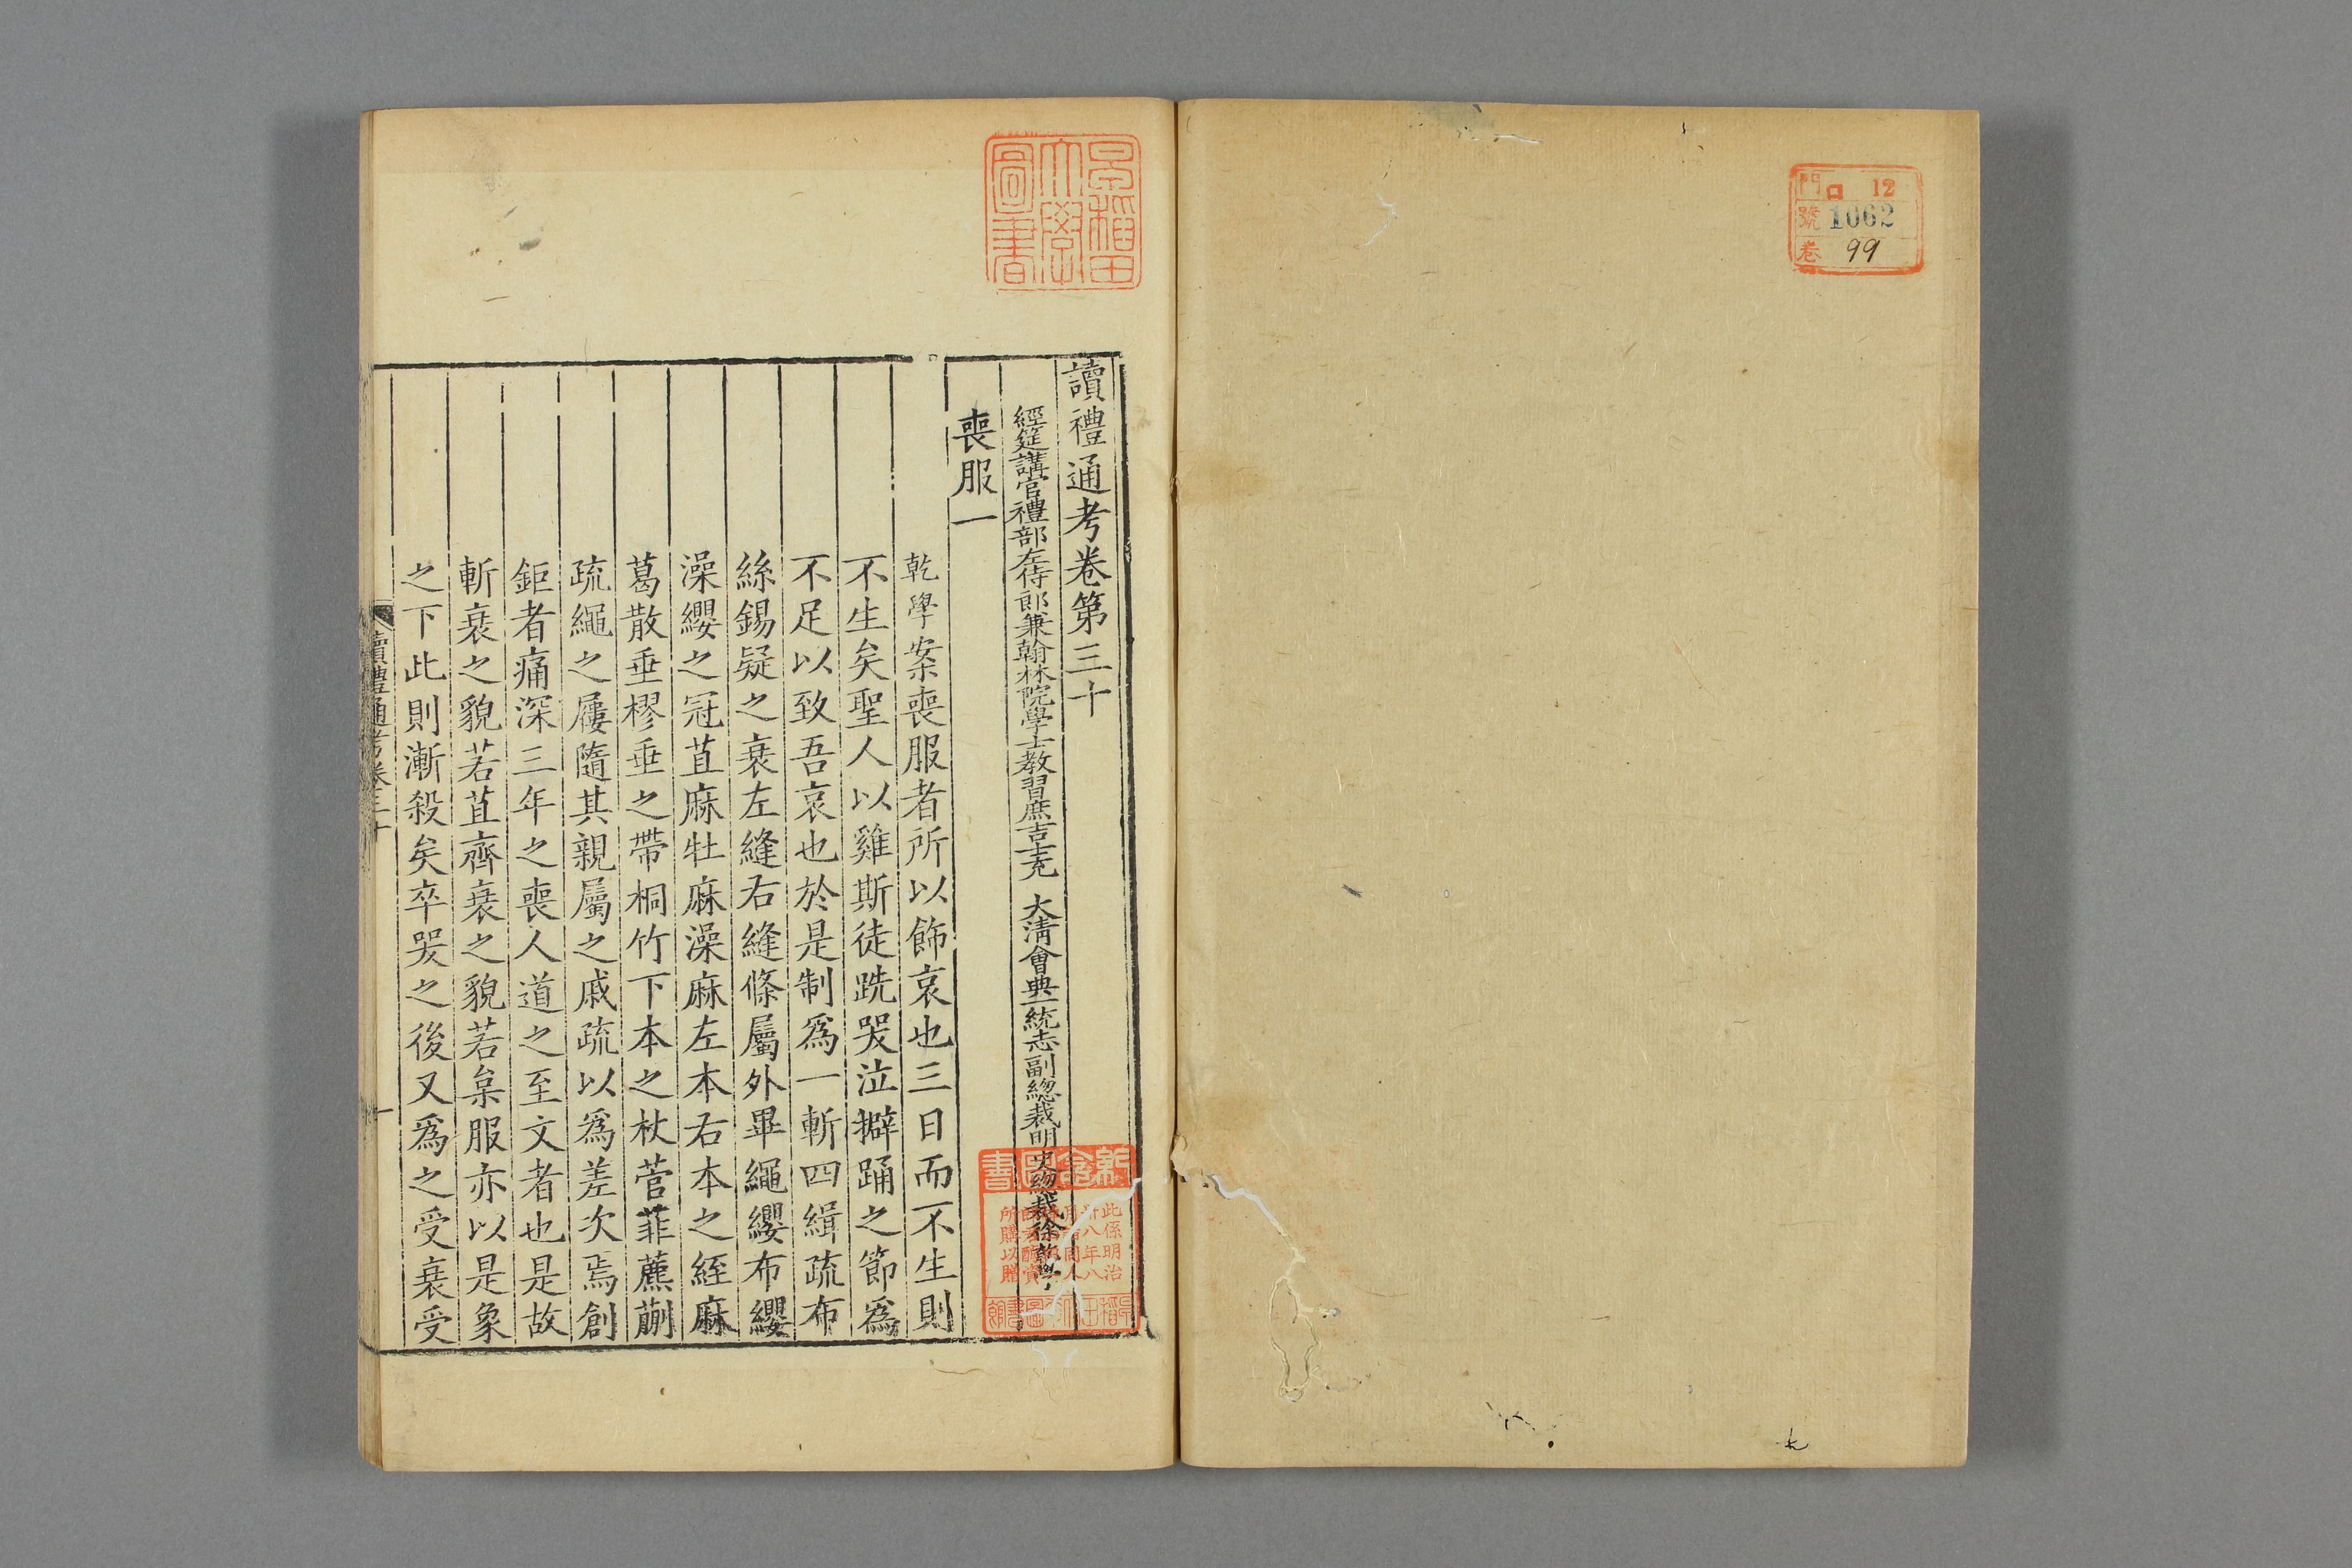 門 ロ 12
號 1062
卷 99
早稻田
大學
圖書
讀禮通考卷第三十
經筵講官禮部左侍郎兼翰林院學士教習庶吉士充 大清會典一統志副總裁明史總裁徐乾學
喪服一
乾學案喪服者所以飾哀也三日而不生則
不生矣聖人以雞斯徒跣哭泣擗踊之節爲
不足以致吾哀也於是制爲一斬四緝疏布
絲錫疑之衰左縫右縫條屬外畢繩纓布纓
澡纓之冠苴麻牡麻澡麻左本右本之絰麻
葛散垂樛垂之帶桐竹下本之杖菅菲藨蒯
疏繩之屨隨其親屬之戚疏以爲差次焉創
鉅者痛深三年之喪人道之至文者也是故
斬衰之貌若苴齊衰之貌若枲服亦以是象
之下此則漸殺矣卒哭之後又爲之受衰受
讀禮通考卷三十
一
此係明治
所購以贈